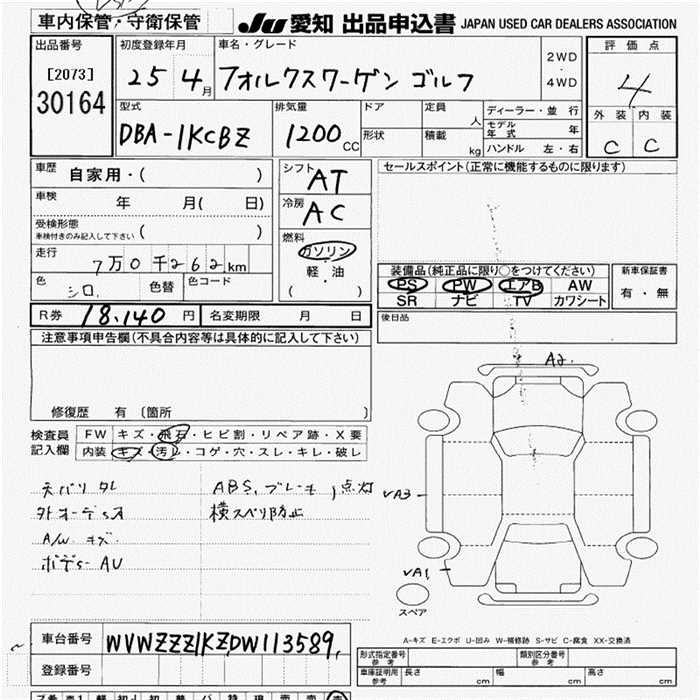 車内保管・守衛保管
JU 愛知 出品申込書 JAPAN USED CAR DEALERS ASSOCIATION
出品番号
[2073]
30164
初度登録年月
25 4月
車名・グレード
フォルクスワーゲン ゴルフ
2WD
・
4WD
評価点
4
外装 内装
C C
型式
DBA-1KCBZ
排気量
1200cc
ドア
形状
定員 人
積載 kg
ディーラー・並行
モデル年式 年
ハンドル 左・右
車歴
自家用・( )
車検 年 月( 日)
受検形態
車検付きのみ記入して下さい ( )
走行
7万0千262km
色 シロ 色替 色コード
シフト AT
冷房 AC
燃料
ガソリン
・
軽・油
( )
セールスポイント(正常に機能するものに限ります)
装備品(純正品に限り○をつけてください)
PS PW エアB AW
SR ナビ TV カワシート
新車保証書
有・無
R券 18,140円 名変期限 月 日
後日品
注意事項申告欄(不具合内容等は具体的に記入して下さい)
修復歴 有〔箇所 〕
検査員
記入欄
FW キズ・飛石・ヒビ割・リペア跡・X要
内装 キズ・汚レ・コゲ・穴・スレ・キレ・破レ
天バリタレ
外オーディオ
A/W キズ
ボディー AU
ABS,ブレーキ,点灯
横スベリ防止
A2.
VA3
VA1
スペア
A-キズ E-エクボ U-凹み W-補修跡 S-サビ C-腐食 XX-交換済
車台番号
WVWZZZ1KZDW113589
登録番号
形式指定番号
参考
類別区分番号
参考
車庫証明用
参考
長さ cm 幅 cm 高さ cm